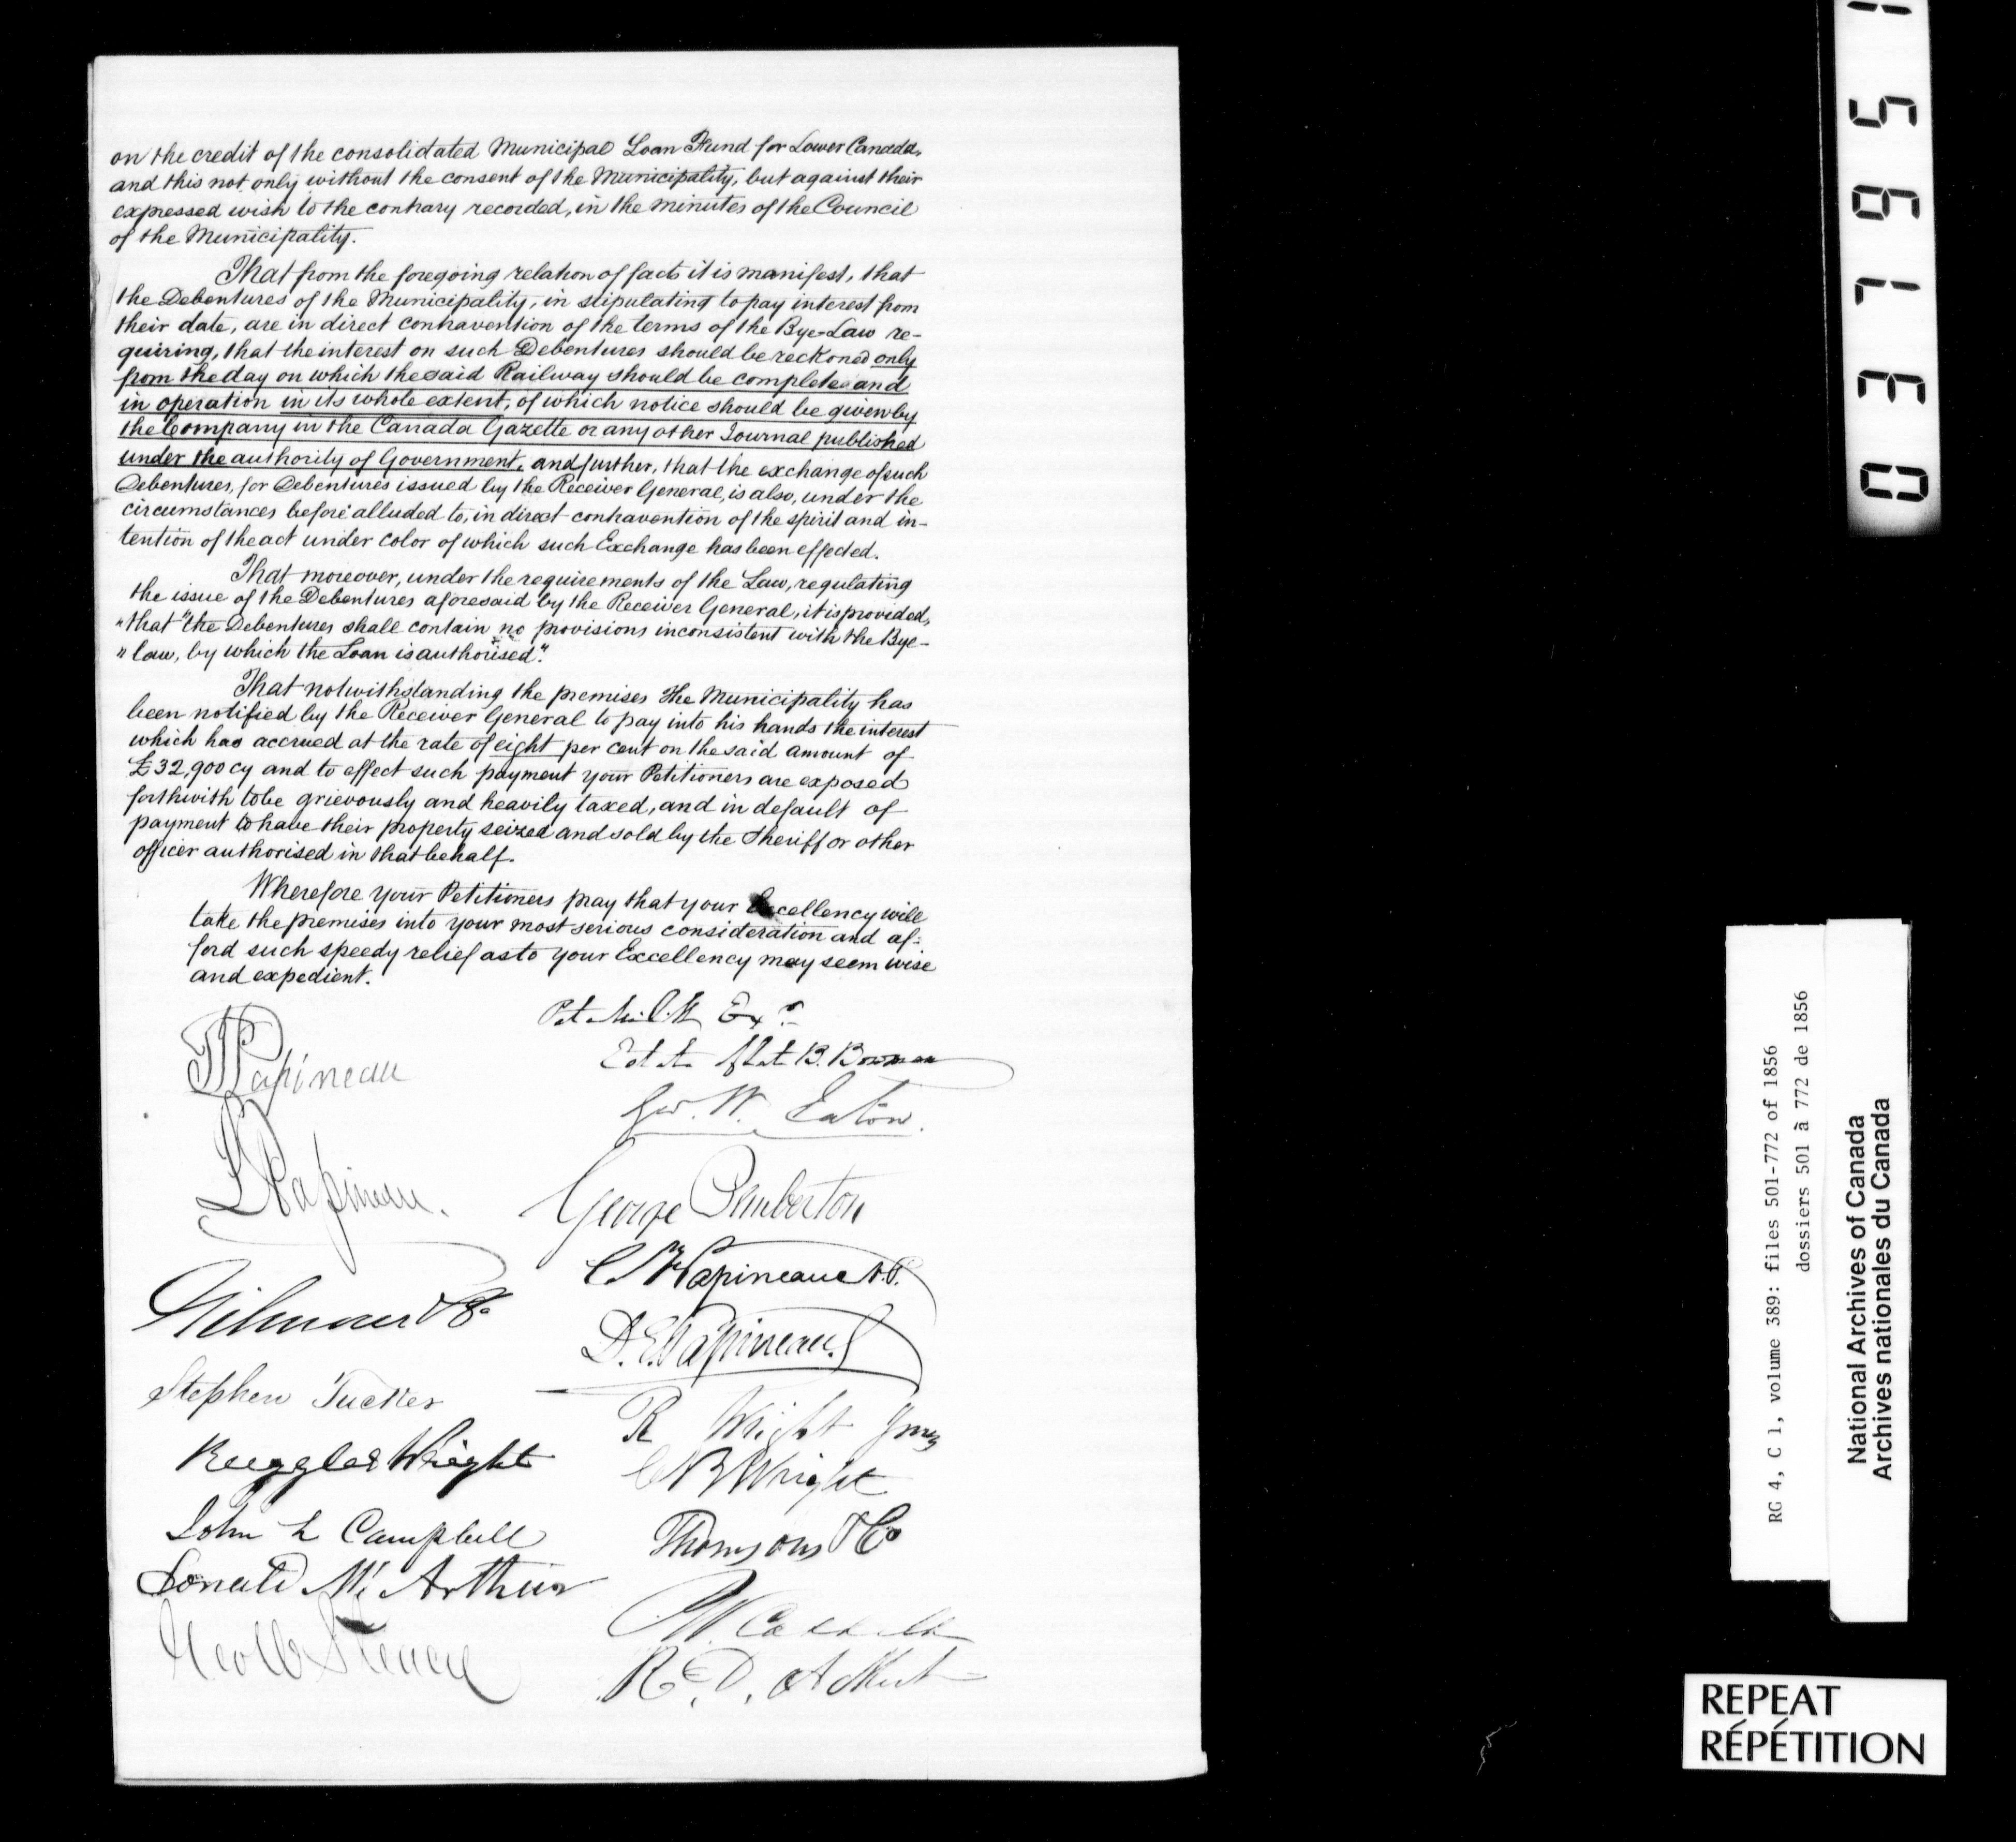 on the credit of the consolidated Municipal Loan Fund for Lower Canada,
and this not only without the consent of the Municipality, but against their
expressed wish to the contrary recorded, in the minutes of the Council
of the Municipality.
That from the foregoing relation of facts it is manifest, that
the Debentures of the Municipality, in stipulating to pay interest from
their date, are in direct contravention of the terms of the Bye-Law re-
quiring, that the interest on such Debentures should be reckoned only
from the day on which the said Railway should be completed and
in operation in its whole extent, of which notice should be given by
the Company in the Canada Gazette or any other Journal published
under the authority of Government, and further, that the exchange of such
Debentures, for Debentures issued by the Receiver General, is also, under the
circumstances before alluded to, in direct contravention of the spirit and in-
tention of the act under color of which such Exchange has been effected.
That moreover, under the requirements of the Law, regulating
the issue of the Debentures aforesaid by the Receiver General, it is provided,
"that "the Debentures shall contain no provisions inconsistent with the Bye-
"law, by which the Loan is authorised".
That notwithstanding the premises the Municipality has
been notified by the Receiver General to pay into his hands the interest
which has accrued at the rate of eight per cent on the said amount of
£32,900 cy and to effect such payment your Petitioners are exposed
forthwith to be grievously and heavily taxed, and in default of
payment to have their property seized and sold by the Sheriff or other
officer authorised in that behalf.
Wherefore your Petitioners pray that your Excellency will
take the premises into your most serious consideration and af-
ford such speedy relief as to your Excellency may seem wise
and expedient.
Papineau
Estate of late B. Bowman
Geo. W. Eaton.
Papineau.
George Pemberton
Papineau N.P.
Gilmour & Co
D. E. Papineau
Stephen Tucker
R Wright
Ruggles Wright
Wright
John L Campbell
Thomsons & Co
Donald Mc Arthur
R. D.
03195
RG 4, C 1, volume 389: files 501-772 of 1856
dossiers 501 à 772 de 1856
National Archives of Canada
Archives nationales du Canada
REPEAT
RÉPÉTITION